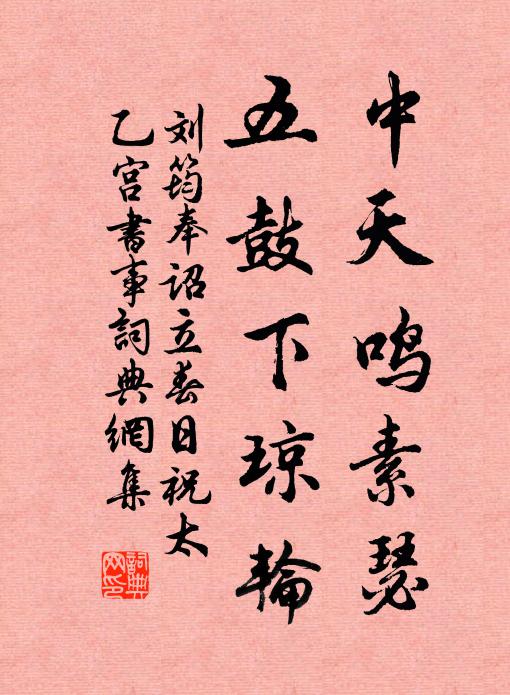 中天鸣素瑟
五鼓下琼轮
刘筠奉诏立春日祝太
乙宫书事词典网集
詞典
网印